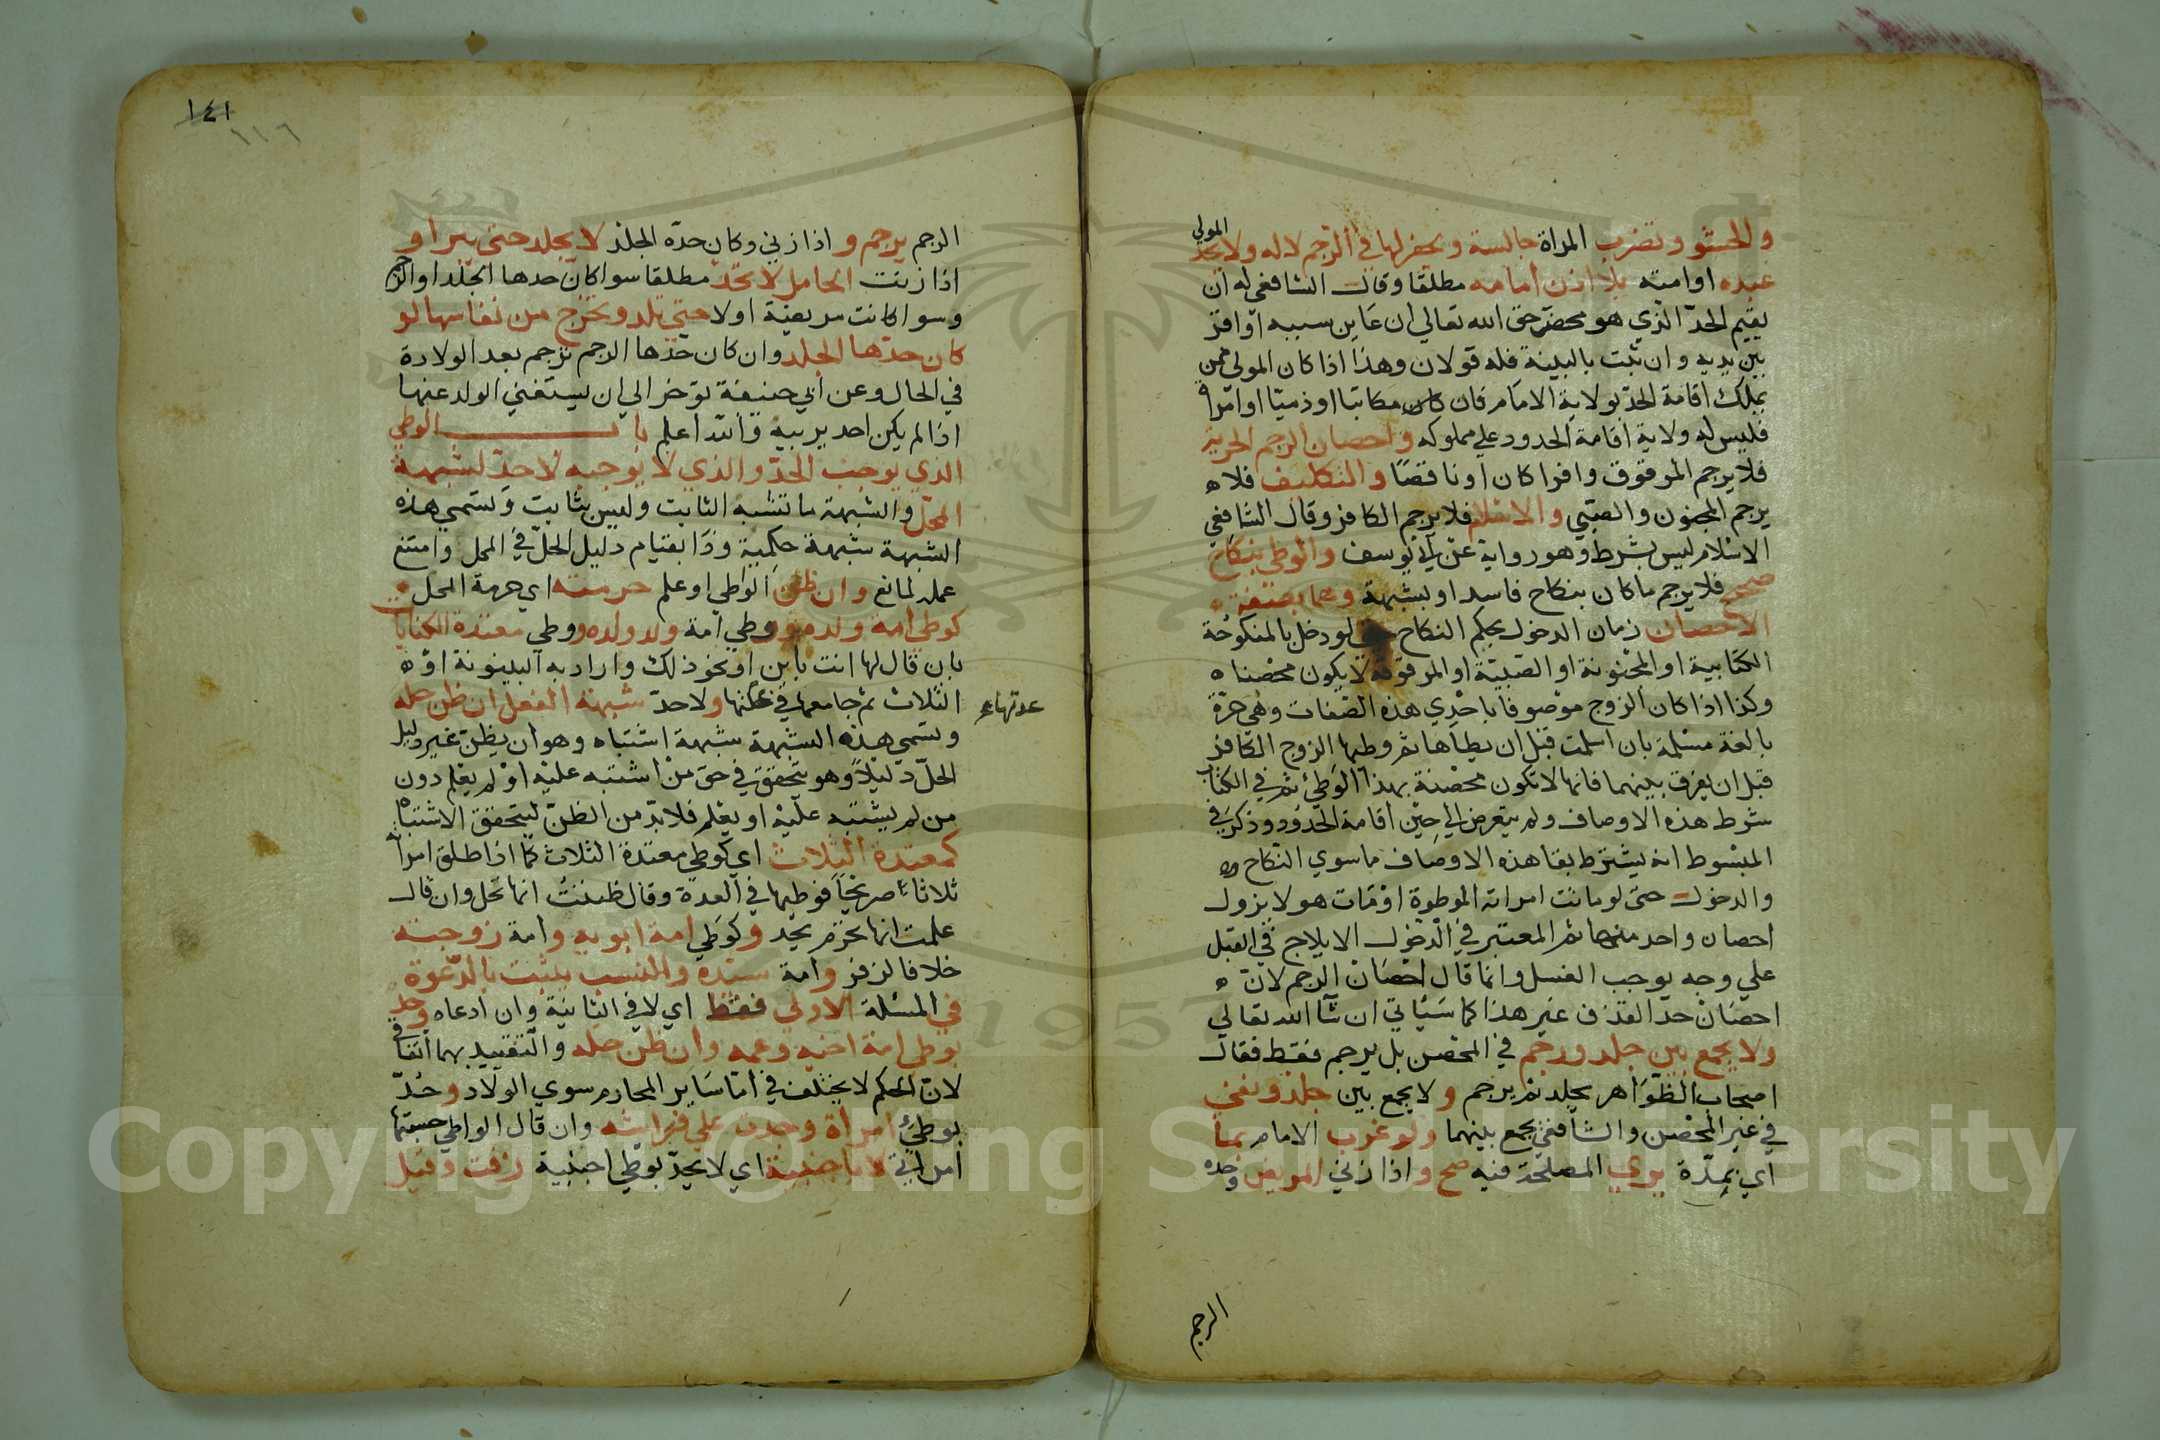 والحشو وتضرب المراة جالسة ويحفر لها في الرجم لا له ولا يحد المولي
عبده او امته بلا اذن امامه مطلقا وقال الشافعي له ان
يقيم الحد الذي هو محض حق الله تعالي ان عاين سببه او اقر
بين يديه وان ثبت بالبينة فله قولان وهذا اذا كان المولي ممن
يملك اقامة الحد بولاية الامام فان كان مكاتبا او ذميا او امراة
فليس له ولاية اقامة الحدود علي مملوكه واحصان الرجم الحرية
فلا يرجم المرقوق وافرا كان او ناقصا والتكليف فلا
يرجم المجنون والصبي والاسلام فلا يرجم الكافر وقال الشافعي
الاسلام ليس بشرط وهو رواية عن ابي يوسف والوطي بنكاح
صحيح فلا يرجم ما كان بنكاح فاسد او بشبهة وهما بصفة
الاحصان زمان الدخول بحكم النكاح حتي لو دخل بالمنكوحة
الكتابية او المجنونة او الصبية او المرقوقة لا يكون محصنا
وكذا اذا كان الزوج موصوفا باحدي هذه الصفات وهي حرة
بالغة مسلمة بان اسلمت قبل ان يطاها ثم وطيها الزوج الكافر
قبل ان يفرق بينهما فانها لا تكون محصنة بهذا الوطئ ثم في الكتاب
شرط هذه الاوصاف ولم يتعرض الي حين اقامة الحدود وذكر في
المبسوط انه يشترط بقا هذه الاوصاف ما سوي النكاح
والدخول حتي لو ماتت امراته الموطوة او مات هو لا يزول
احصان واحد منهما ثم المعتبر في الدخول الايلاج في القبل
علي وجه يوجب الغسل وانما قال احصان الرجم لان
احصان حد القذف غير هذا كما سياتي ان شآ الله تعالي
ولا يجمع بين جلد ورجم في المحصن بل يرجم فقط فقال
اصحاب الظواهر يجلد ثم يرجم ولا يجمع بين جلد ونفي
في غير المحصن والشافعي يجمع بينهما ولو غرب الامام بما
اي بمدة يري المصلحة فيه صح واذا زني المريض وحده
الرجم
١٤١
١١٦
الرجم يرجم واذا زني وكان حده الجلد لا يجلد حتي يبرا و
اذا زنت الحامل لا تحد مطلقا سوا كان حدها الجلد او الرجم
وسوا كانت مريضة او لا حتي تلد وتخرج من نفاسها لو
كان حدها الجلد وان كان حدها الرجم ترجم بعد الولادة
في الحال وعن ابي حنيفة توخر الي ان يستغني الولد عنها
اذا لم يكن احد يربيه والله اعلم باب الوطي
الذي يوجب الحد والذي لا يوجبه لا حد لشبهة
المحل والشبهة ما تشبه الثابت وليس بثابت وتسمي هذه
الشبهة شبهة حكمية وذا بقيام دليل الحل في المحل وامتنع
عمله لمانع وان ظن الواطي او علم حرمته اي حرمة المحل
كوطي امة ولده ووطي امة ولد ولده ووطي معتدة الكنايات
بان قال لها انت باين او نحو ذلك واراد به البينونة او
الثلاث ثم جامعها في عدتها ولا حد شبهة الفعل ان ظن حله
عدتها
وتسمي هذه الشبهة شبهة اشتباه وهو ان يظن غير دليل
الحل دليلا وهو يتحقق في حق من اشتبه عليه او لم يعلم دون
من لم يشتبه عليه او يعلم فلا بد من الظن ليتحقق الاشتباه
كمعتدة الثلاث اي كوطي معتدة الثلاث كما اذا طلق امراته
ثلاثا صريحا فوطيها في العدة وقال ظننت انها تحل وان قال
علمت انها تحرم يحد وكوطي امة ابويه وامة زوجته
خلافا لزفر وامة سيده والنسب يثبت بالدعوة
في المسئلة الاولي فقط اي لا في الثانية وان ادعاه وحد
بوطي امة اخيه وعمه وان ظن حله والتقييد بهما اتفاقي
لان الحكم لا يختلف في اما ساير المحارم سوي الولاد وحد
بوطئ امراة وجدت علي فراشه وان قال الواطي حسبتها
امراتي لا باجنبية اي لا يحد بوطي اجنبية زفت وقيل
Copyright © King Saud University
1957